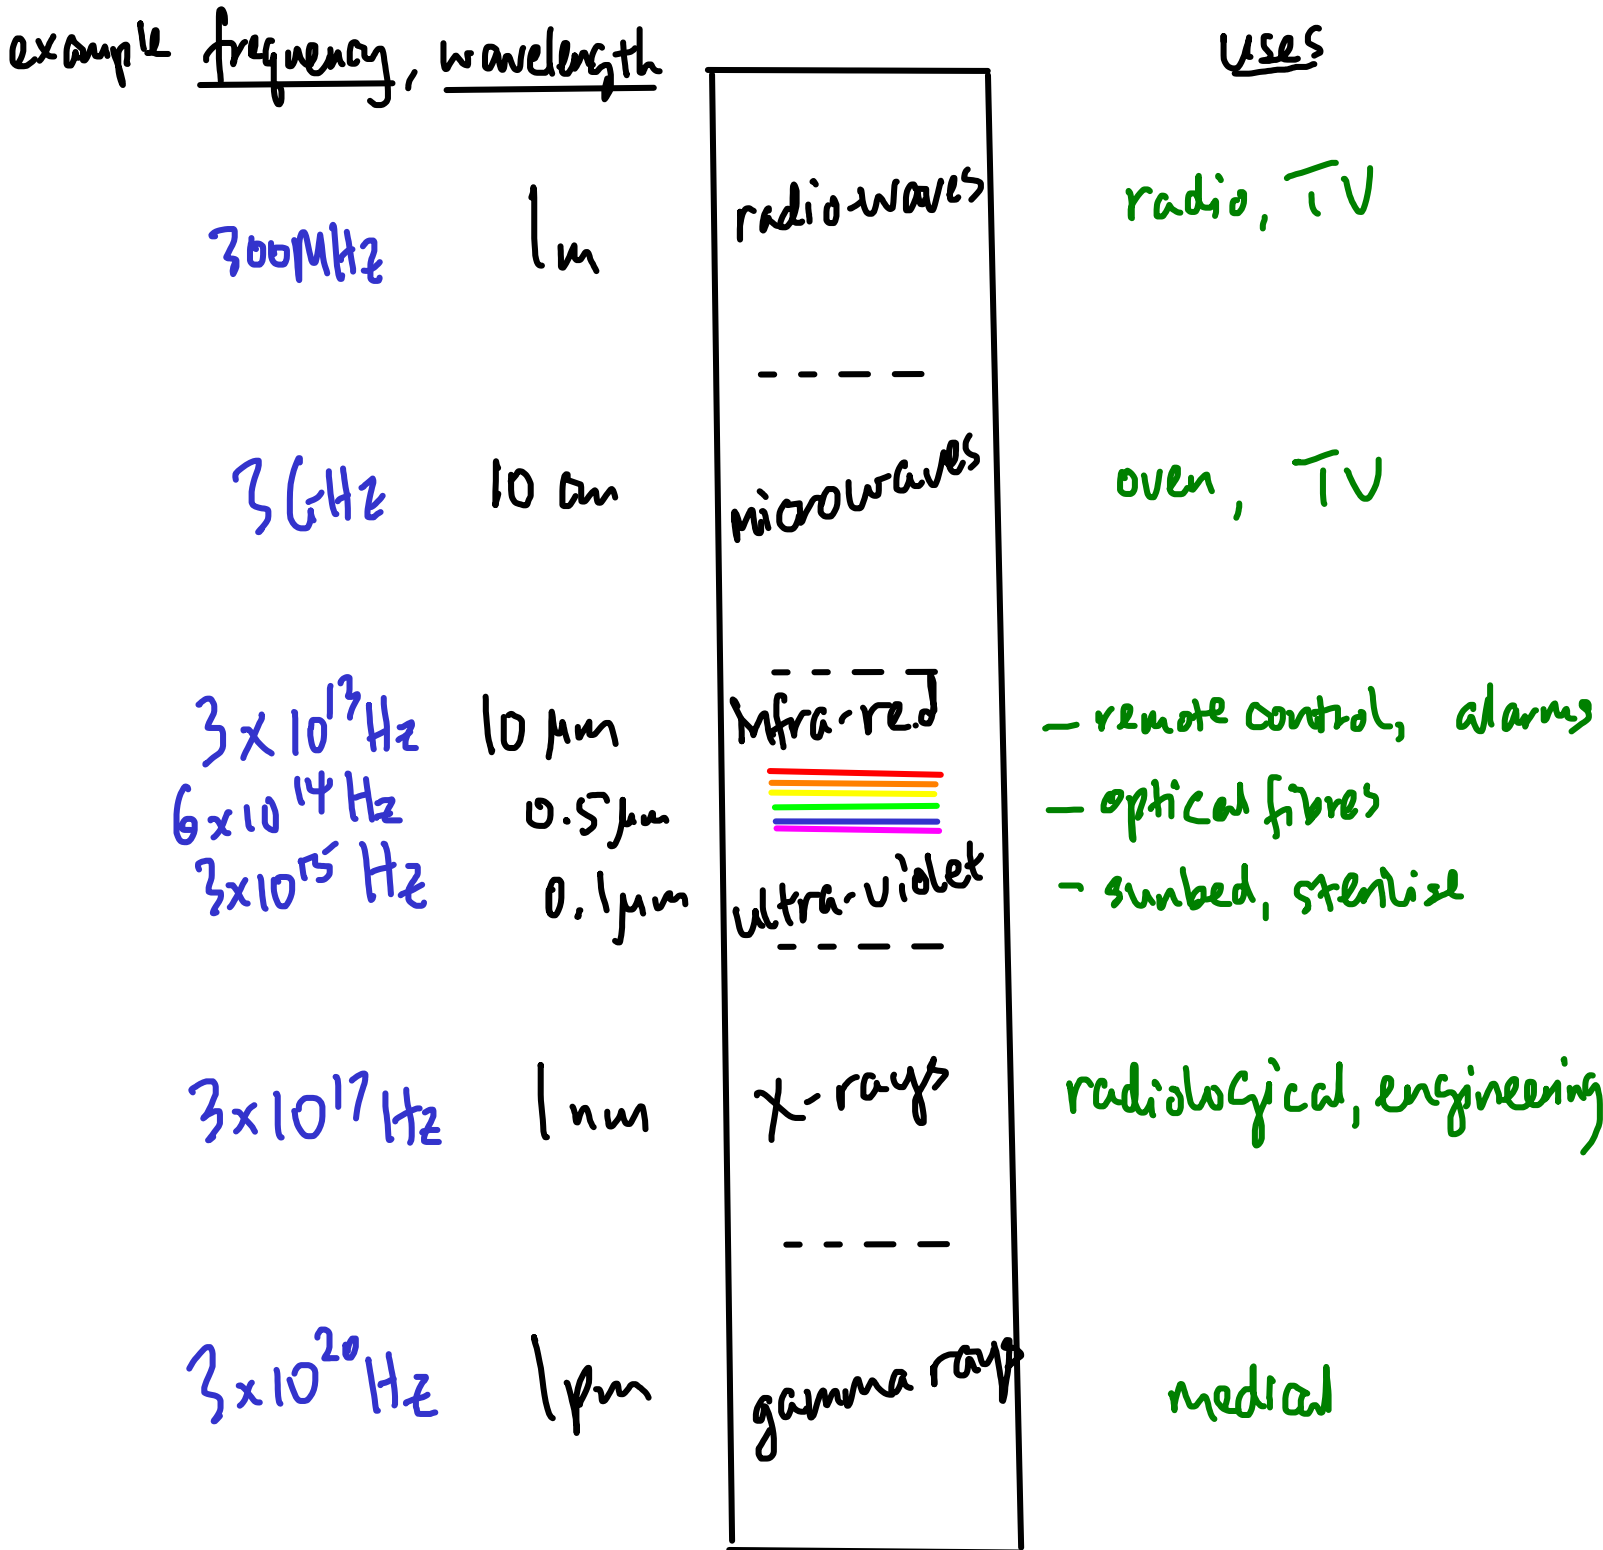 example frequency, wavelength uses
300MHz 1m radio-waves radio, TV
3GHz 10 cm microwaves oven, TV
3 x 10¹³Hz 10 μm infra-red – remote control, alarms
6x10¹⁴Hz 0.5μm – optical fibres
3x10¹⁵ Hz 0.1μm ultra-violet – sunbed, sterilise
3x10¹⁷Hz 1 nm X-rays radiological, engineering
3x10²⁰Hz 1pm gamma rays medical